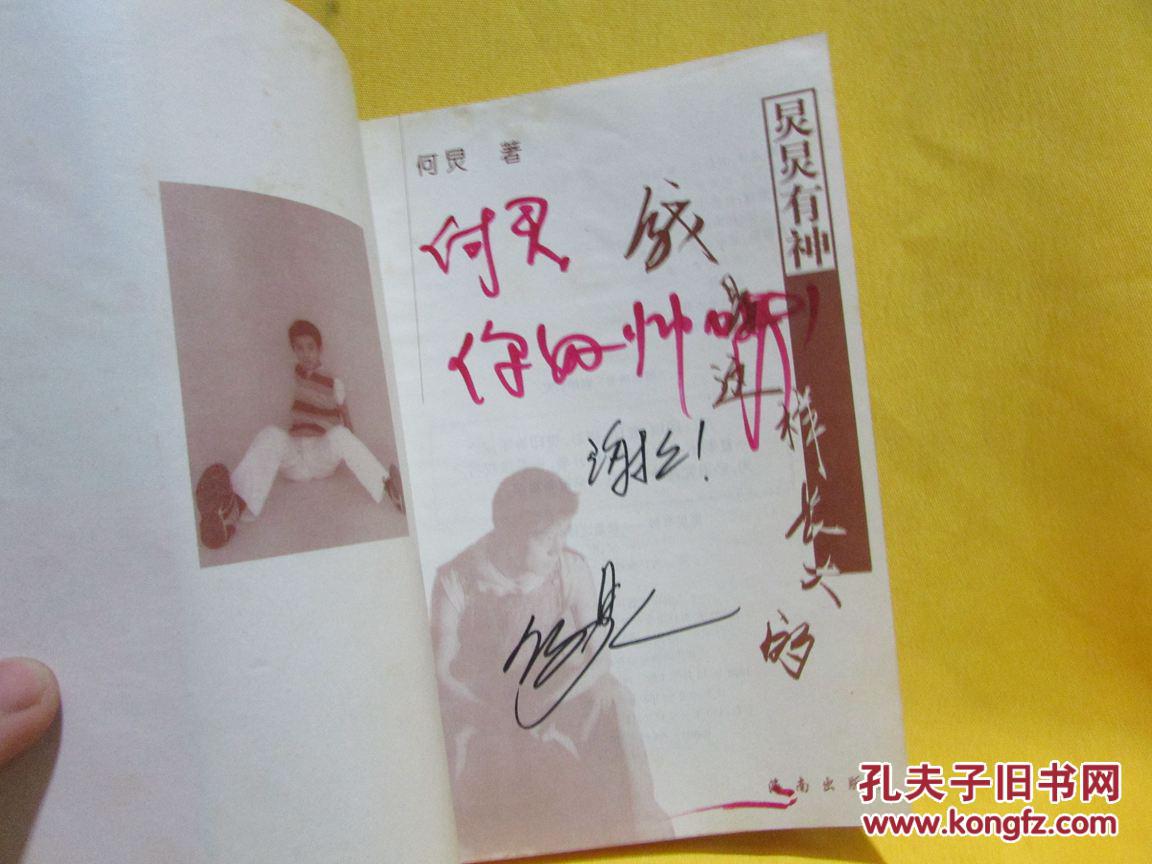 炅炅有神
何炅 著
何炅
你好帅啊!
我
是
这
样长大
的
谢谢!
何炅
海南出版
孔夫子旧书网
www.kongfz.com